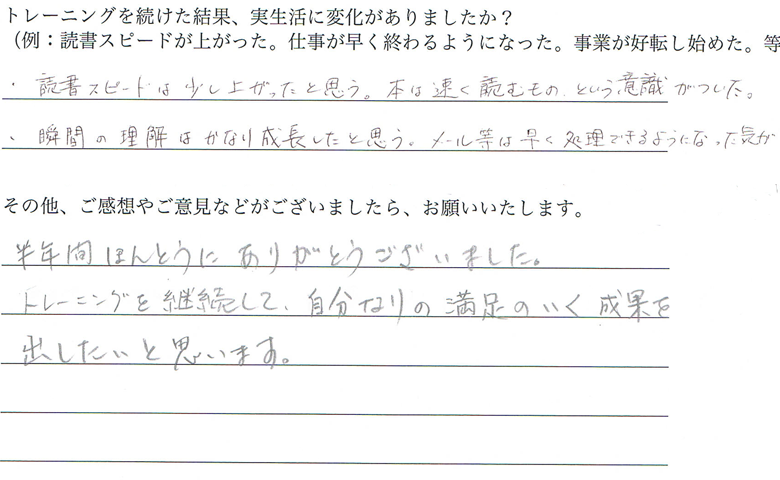 トレーニングを続けた結果、実生活に変化がありましたか？
（例：読書スピードが上がった。仕事が早く終わるようになった。事業が好転し始めた。等
・読書スピードは少し上がったと思う。本は速く読むもの、という意識がついた。
・瞬間の理解はかなり成長したと思う。メール等は早く処理できるようになった気が
その他、ご感想やご意見などがございましたら、お願いいたします。
半年間ほんとうにありがとうございました。
トレーニングを継続して、自分なりの満足のいく成果を
出したいと思います。